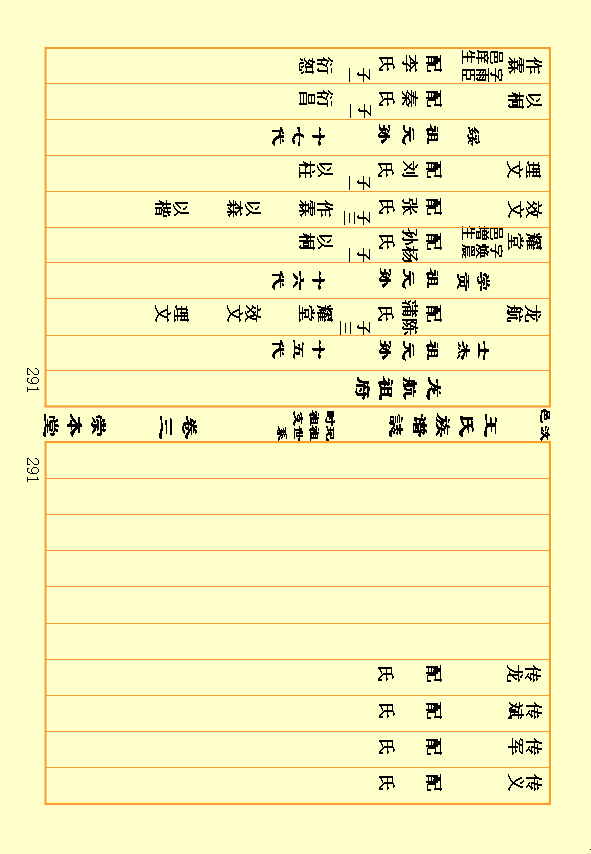 传义 配 氏
传军 配 氏
传斌 配 氏
传龙 配 氏
291
汶邑 王氏族谱誌 卷三 崇本堂
龙航祖府
士杰祖元孙十五代
龙航 配陈蒲氏 子三 耀堂 效文 理文
学贡祖元孙十六代
耀堂 字焕晨 邑增生 配杨孙氏 子一 以桐
效文 配张氏 子三 作霖 以森 以楷
理文 配刘氏 子一 以柱
绥祖元孙十七代
以桐 配秦氏 子一 衍昌
作霖 字雨臣 邑庠生 配李氏 子一 衍恕
291